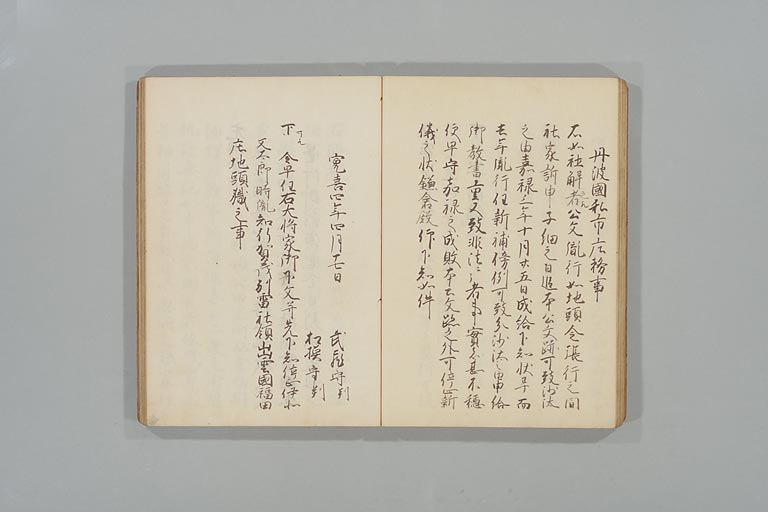 丹波國私市庄務事
右如社解者公文胤行如地頭令張行之間
社家訴申子細之日追本公文跡可致沙汰
之由嘉禄三年十月廿五日成給下知状早而
去年胤行任新補傍例可致之沙汰之由申給
御教書重又致非法云者事實者甚不穏
便早守嘉禄之成敗本公文跡之外可停止新
儀之状鎌倉殿仰下知如件
寛喜四年四月十七日
武蔵守判
相模守判
下 令早任右大将家御下文并先下知停止伊北
又太郎時胤知行賀茂別雷社領出雲國福田
庄地頭職之事